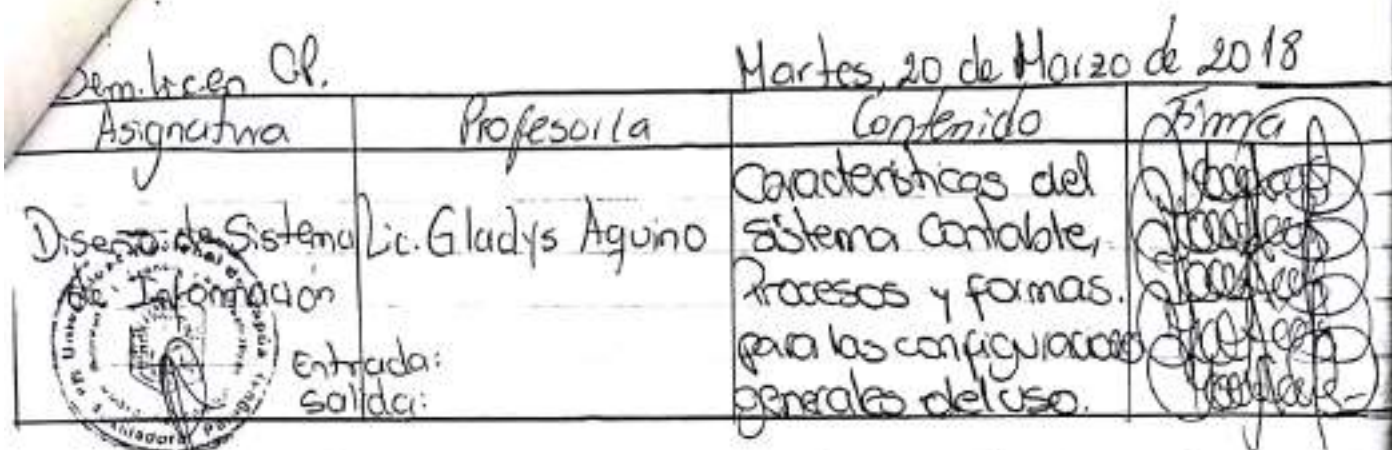 Sem. Lic. en CP.
Martes, 20 de Marzo de 2018
Asignatura Profesor/a Contenido Firma
Diseño de Sistema
de Información
Entrada:
Salida:
Lic. Gladys Aquino
Características del
sistema Contable,
Procesos y formas.
para las configuraciones
generales del uso.